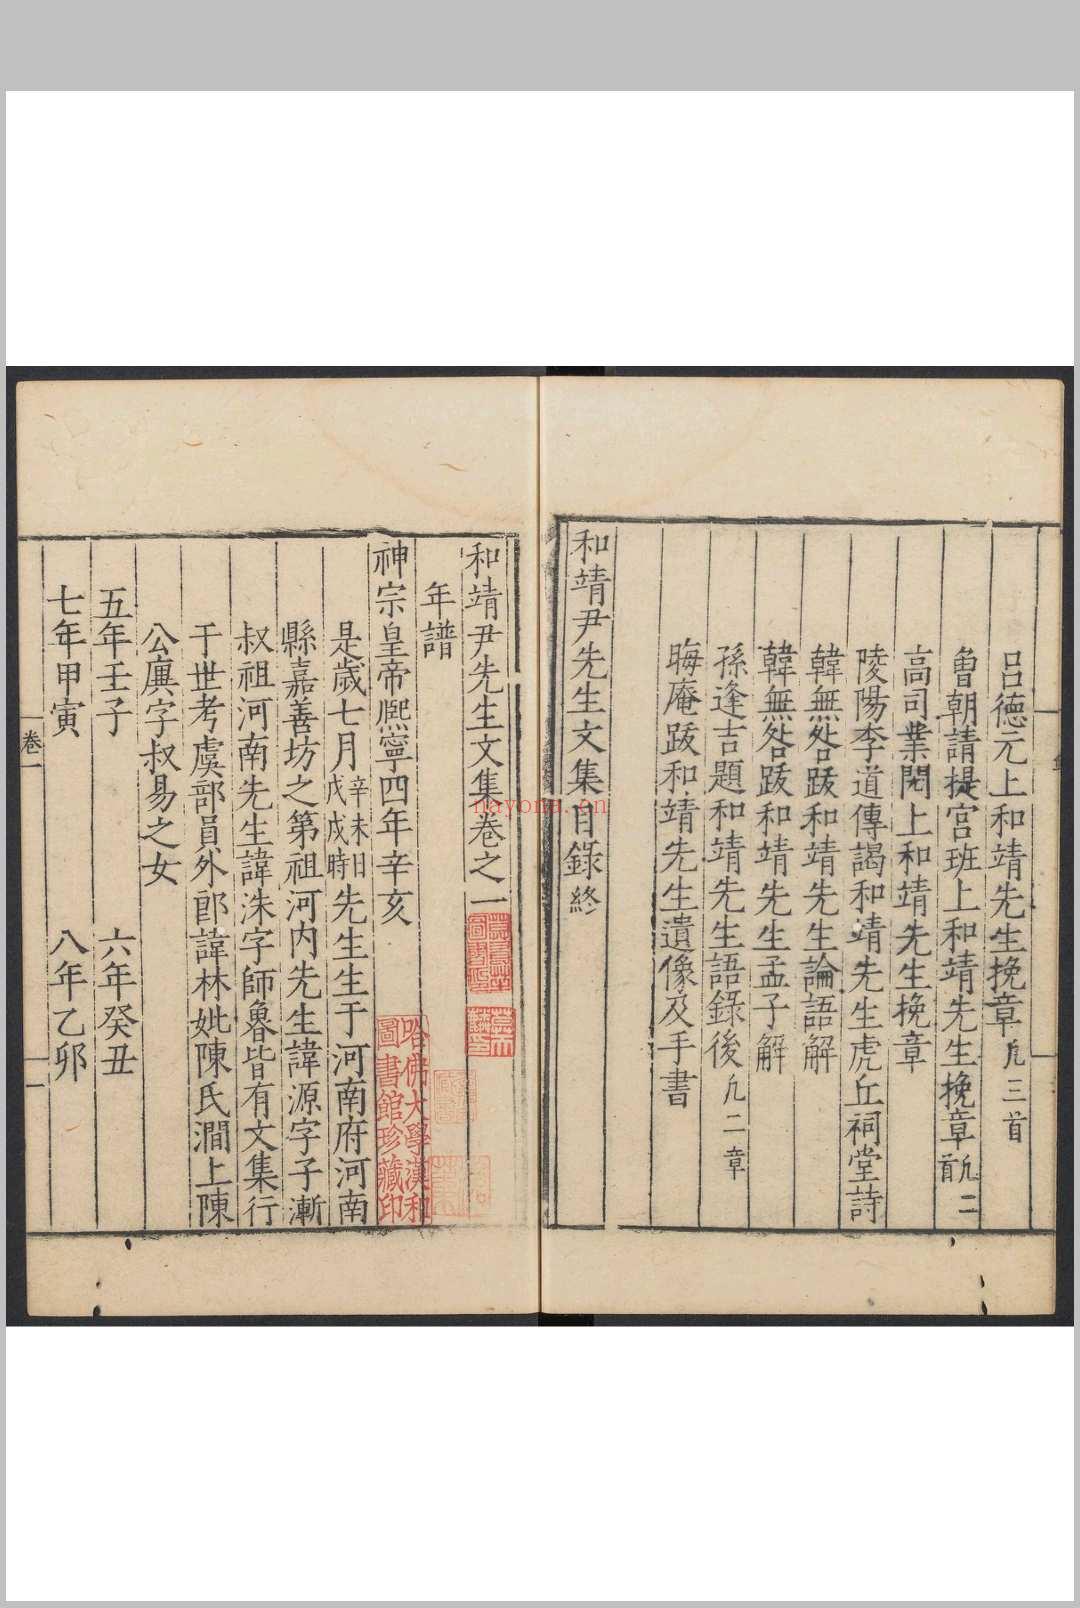 呂德元上和靖先生挽章凡三首
魯朝請提宮班上和靖先生挽章凡二首
高司業閌上和靖先生挽章
陵陽李道傳謁和靖先生虎丘祠堂詩
韓無咎䟦和靖先生論語解
韓無咎䟦和靖先生孟子解
孫逢吉題和靖先生語錄後凡二章
晦庵䟦和靖先生遺像及手書
和靖尹先生文集目錄終
和靖尹先生文集卷之一
年譜
神宗皇帝熈寧四年辛亥
是歲七月辛未日戊戌時先生生于河南府河南
縣嘉善坊之第祖河內先生諱源字子漸
叔祖河南先生諱洙字師魯皆有文集行
于世考虞部員外郎諱林妣陳氏澗上陳
公㢘字叔易之女
五年壬子 六年癸丑
七年甲寅 八年乙卯
卷一
一
哈佛大學漢和圖書館珍藏印
nayona.cn